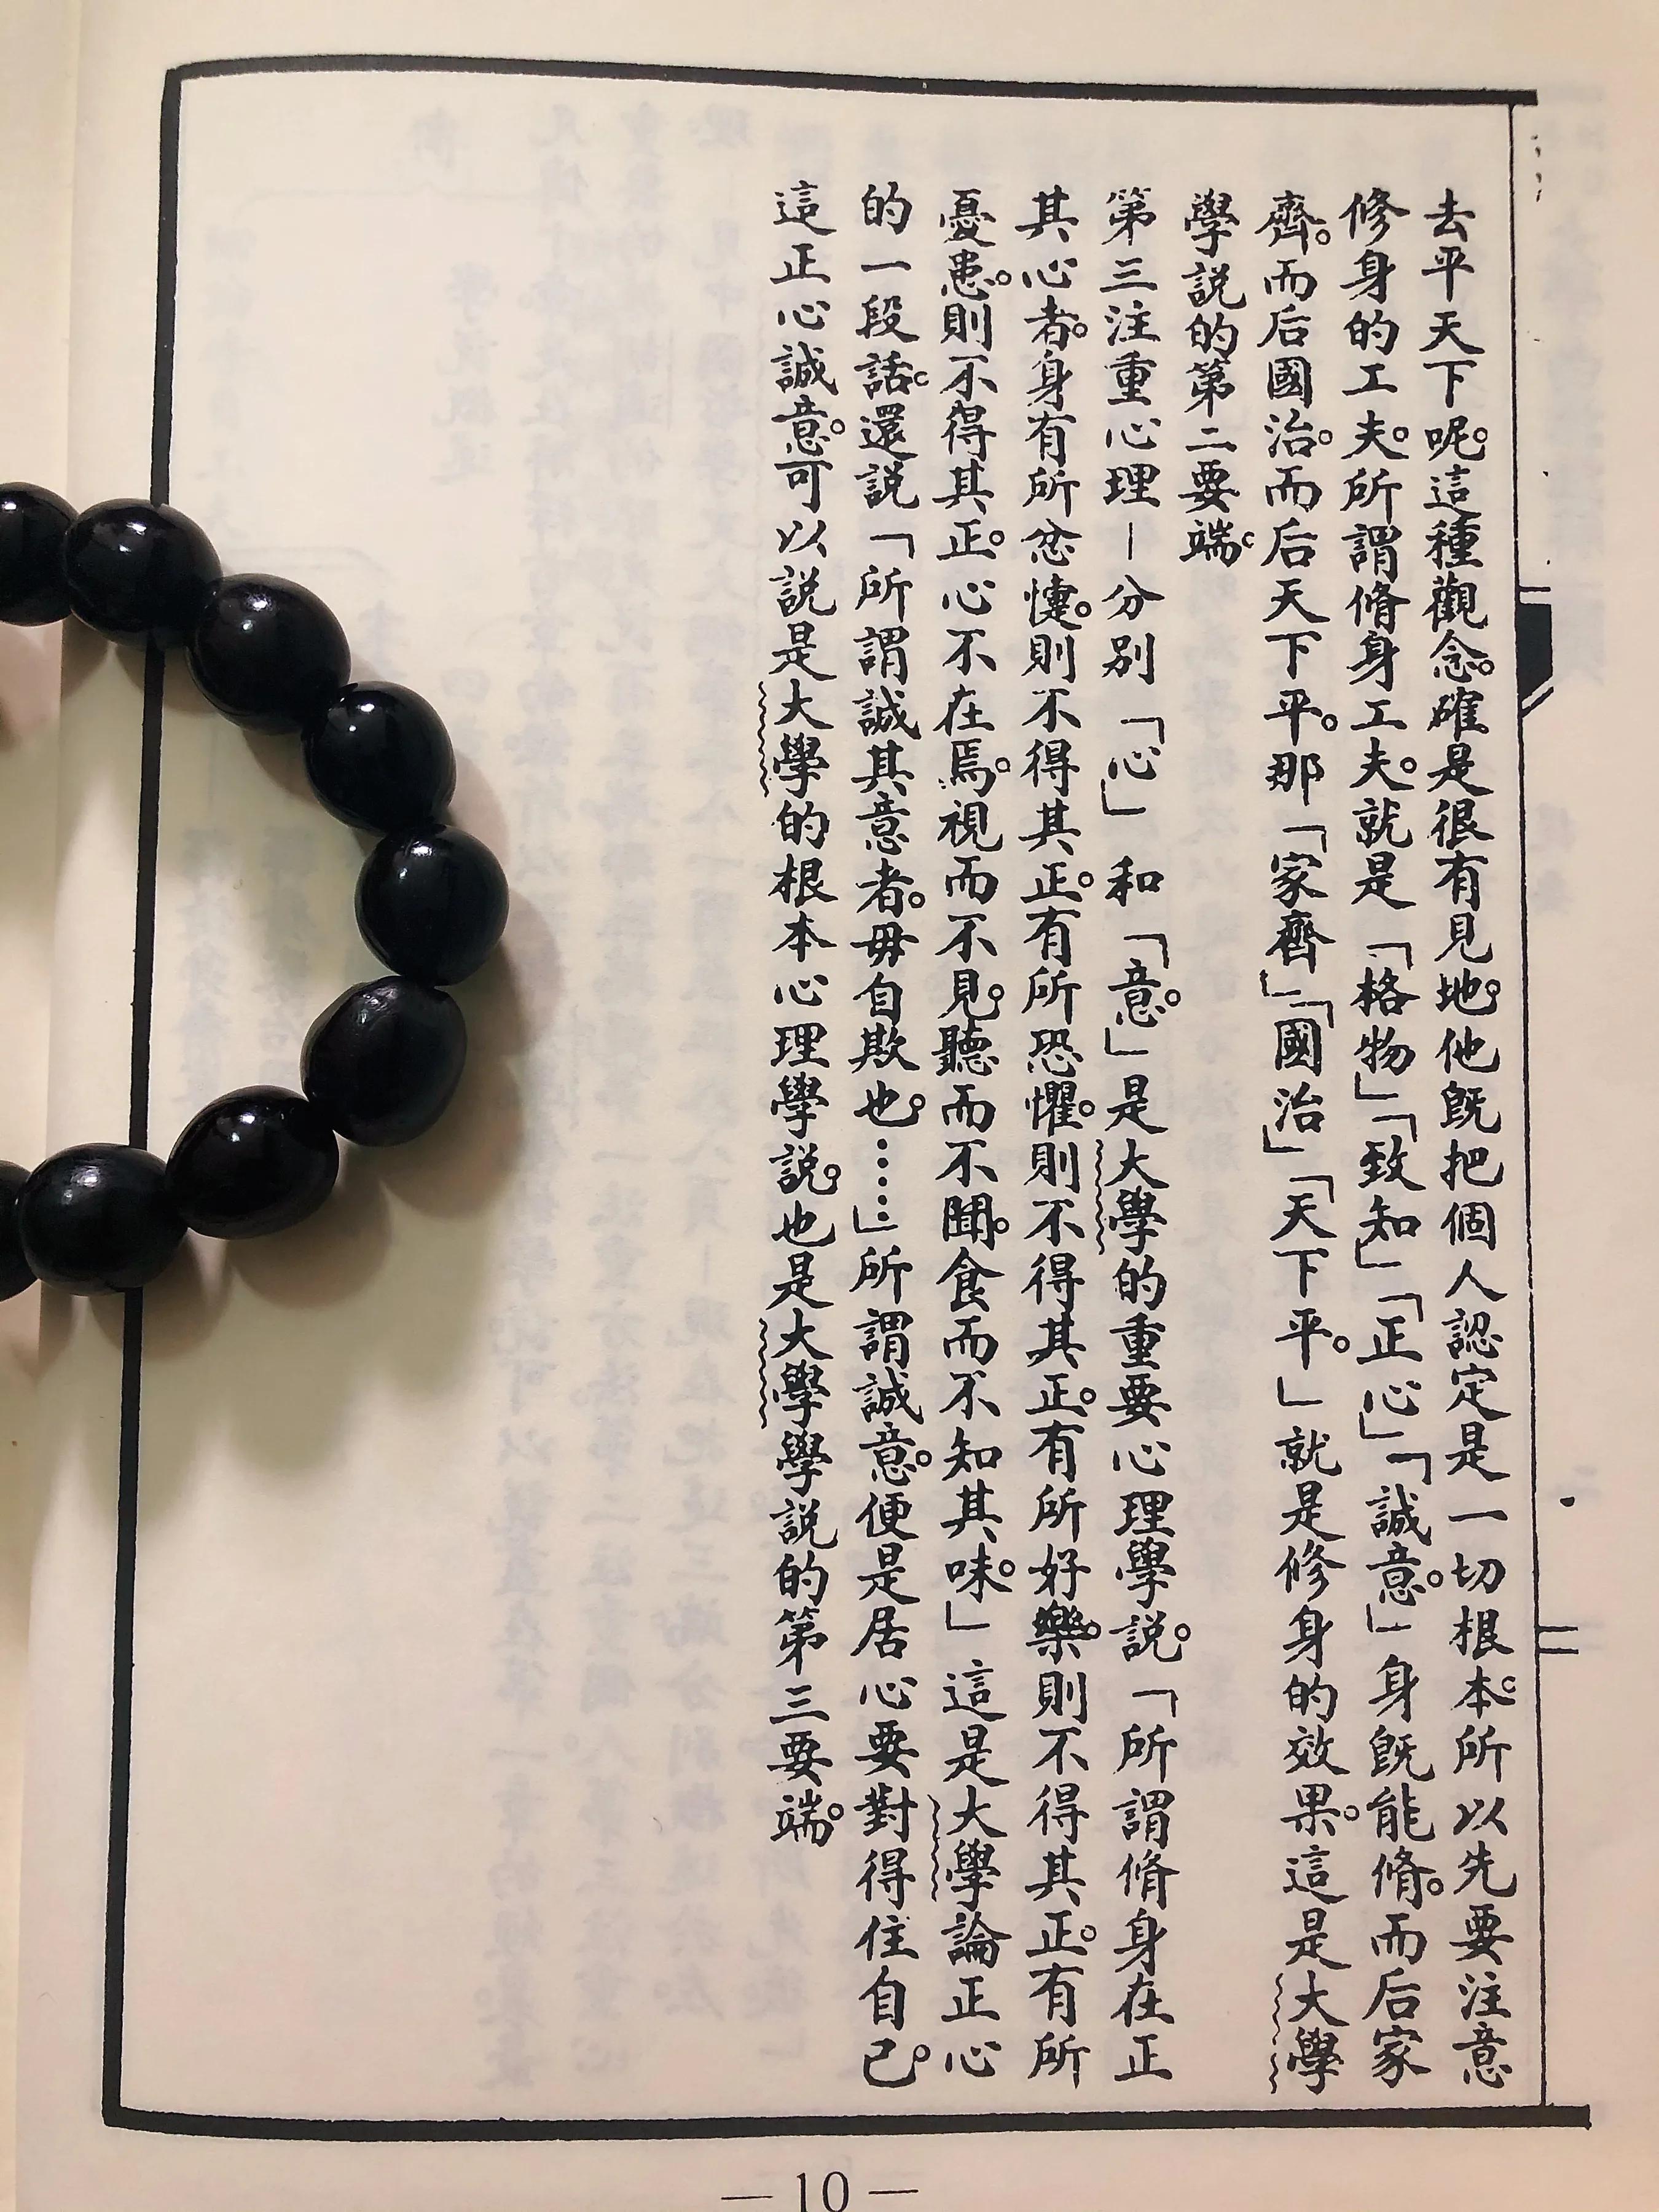 去平天下呢。這種觀念。確是很有見地。他旣把個人認定是一切根本。所以先要注意
修身的工夫。所謂脩身工夫。就是「格物」「致知」「正心」「誠意。」身旣能脩。而后家
齊。而后國治。而后天下平。那「家齊」「國治」「天下平。」就是修身的效果。這是大學
學説的第二要端。
第三注重心理－分别「心」和「意。」是大學的重要心理學説。「所謂脩身在正
其心者。身有所忿懥。則不得其正。有所恐懼。則不得其正。有所好樂。則不得其正。有所
憂患。則不得其正。心不在焉。視而不見。聽而不聞。食而不知其味。」這是大學論正心
的一段話。還説「所謂誠其意者。毋自欺也。……」所謂誠意。便是居心要對得住自己。
這正心誠意。可以説是大學的根本心理學説。也是大學學説的第三要端。
—10—